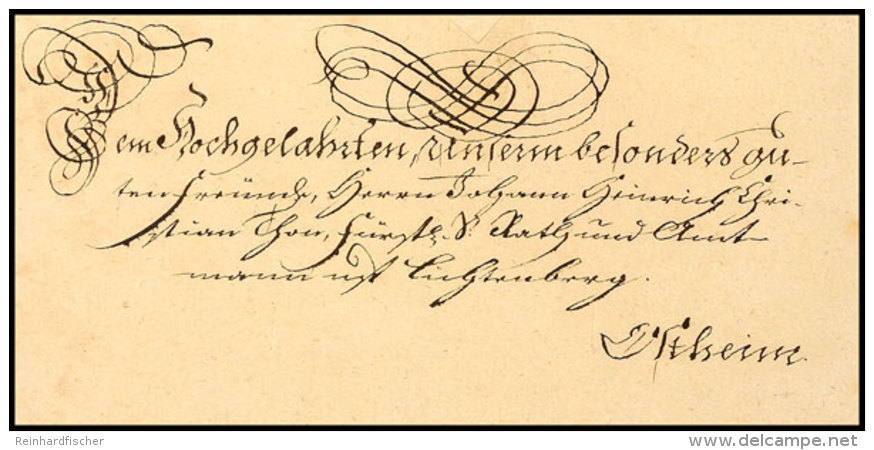 Dem Hochgelahrten, Unserm besonders gu-
ten Freunde, Herrn Johann Heinrich Chri-
stian Thon, Fürstl. S. Rath und Amt-
mann Lichtenberg.
Ostheim
Reinhardfischer
www.delcampe.net